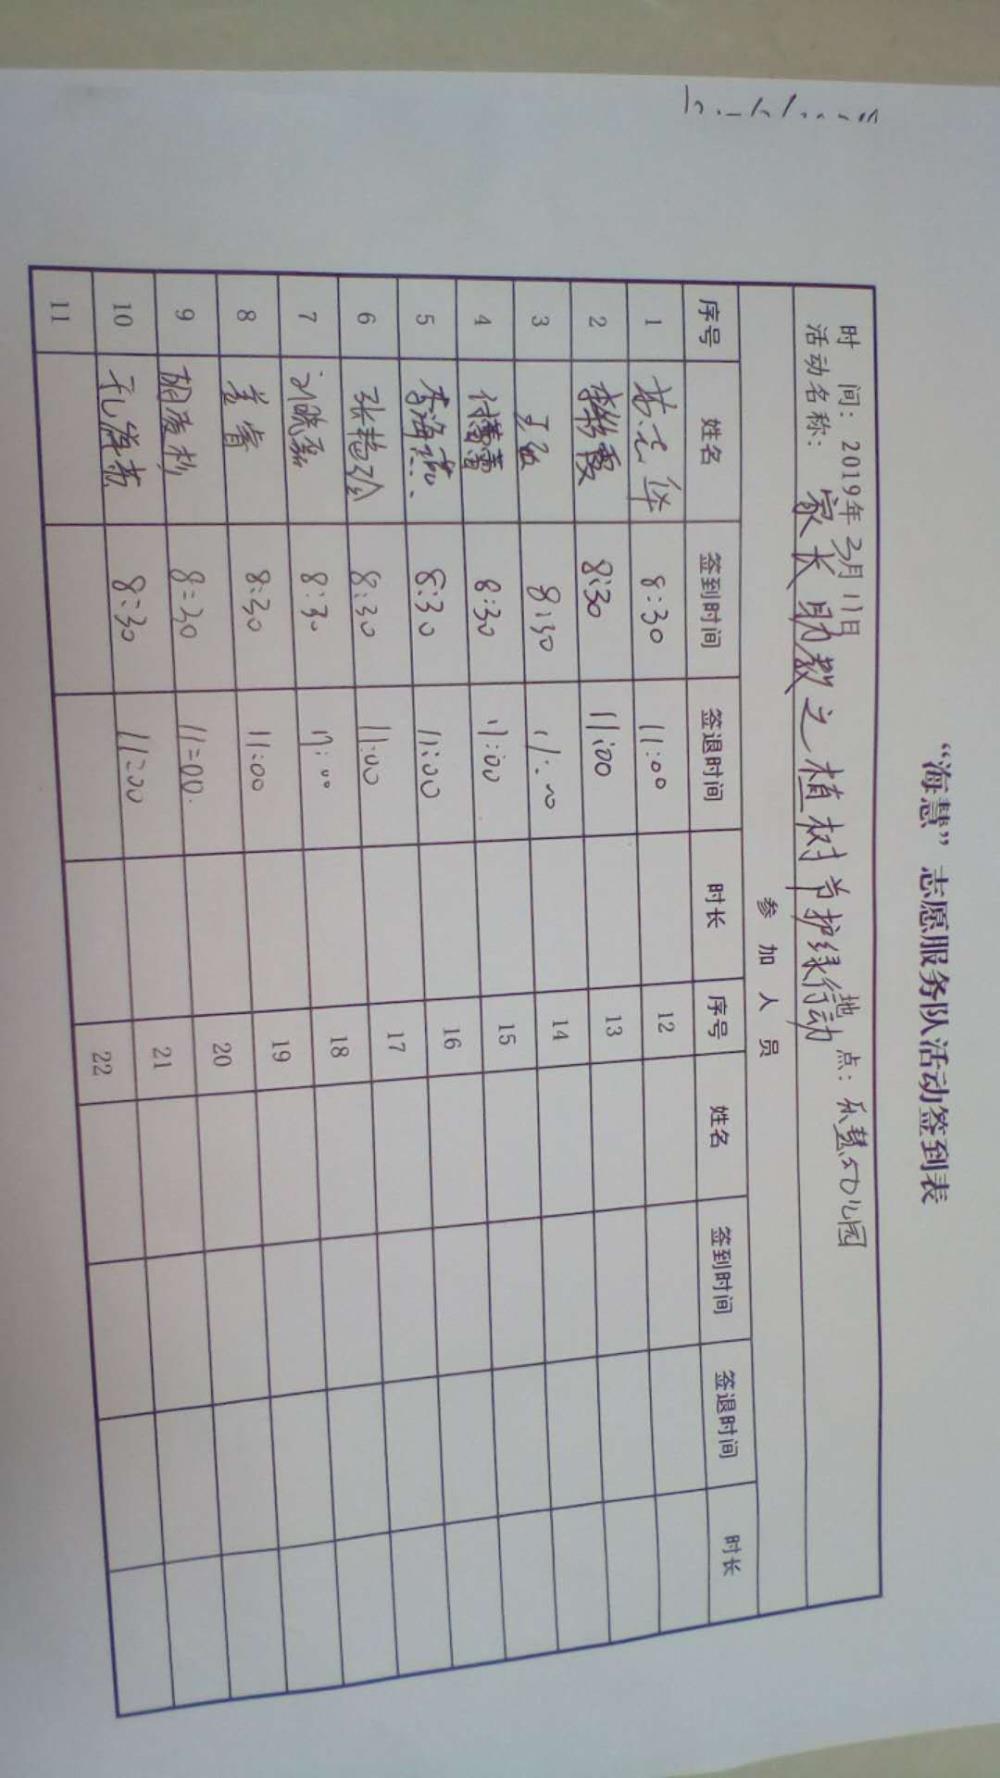 “海慧”志愿服务队活动签到表
时 间：2019年3月11日 地 点：乐慧幼儿园
活动名称：家长助教之植树节护绿行动
参 加 人 员
序号 姓名 签到时间 签退时间 时长 序号 姓名 签到时间 签退时间 时长
1 8:30 11:00 12
2 8:30 11:00 13
3 8:30 11:00 14
4 付蕾蕾 8:30 11:00 15
5 8:30 11:00 16
6 8:30 11:00 17
7 刘晓磊 8:30 11:00 18
8 8:30 11:00 19
9 8:30 11:00 20
10 8:30 11:00 21
11 22